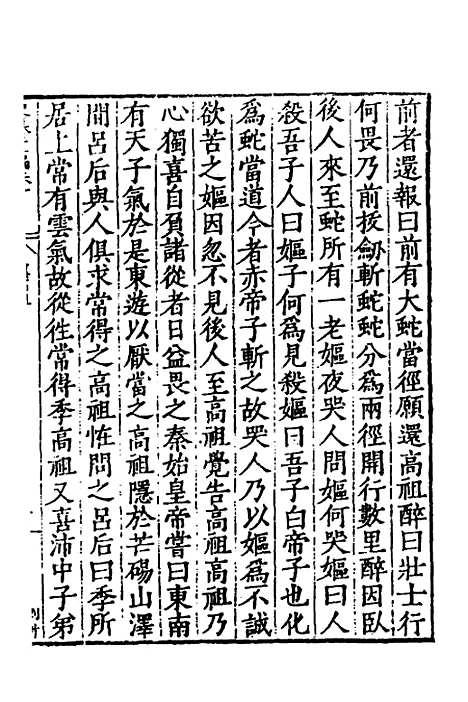 前者還報曰前有大蛇當徑願還高祖醉曰壯士行
何畏乃前拔劒斬蛇蛇分爲兩徑開行數里醉因臥
後人來至蛇所有一老嫗夜哭人問嫗何哭嫗曰人
殺吾子人曰嫗子何爲見殺嫗曰吾子白帝子也化
爲蛇當道今者赤帝子斬之故哭人乃以嫗爲不誠
欲苦之嫗因忽不見後人至高祖覺告高祖高祖乃
心獨喜自負諸從者日益畏之秦始皇帝嘗曰東南
有天子氣於是東遊以厭當之高祖隱於芒碭山澤
間呂后與人俱求常得之高祖怪問之呂后曰季所
居上常有雲氣故從徃常得季高祖又喜沛中子弟